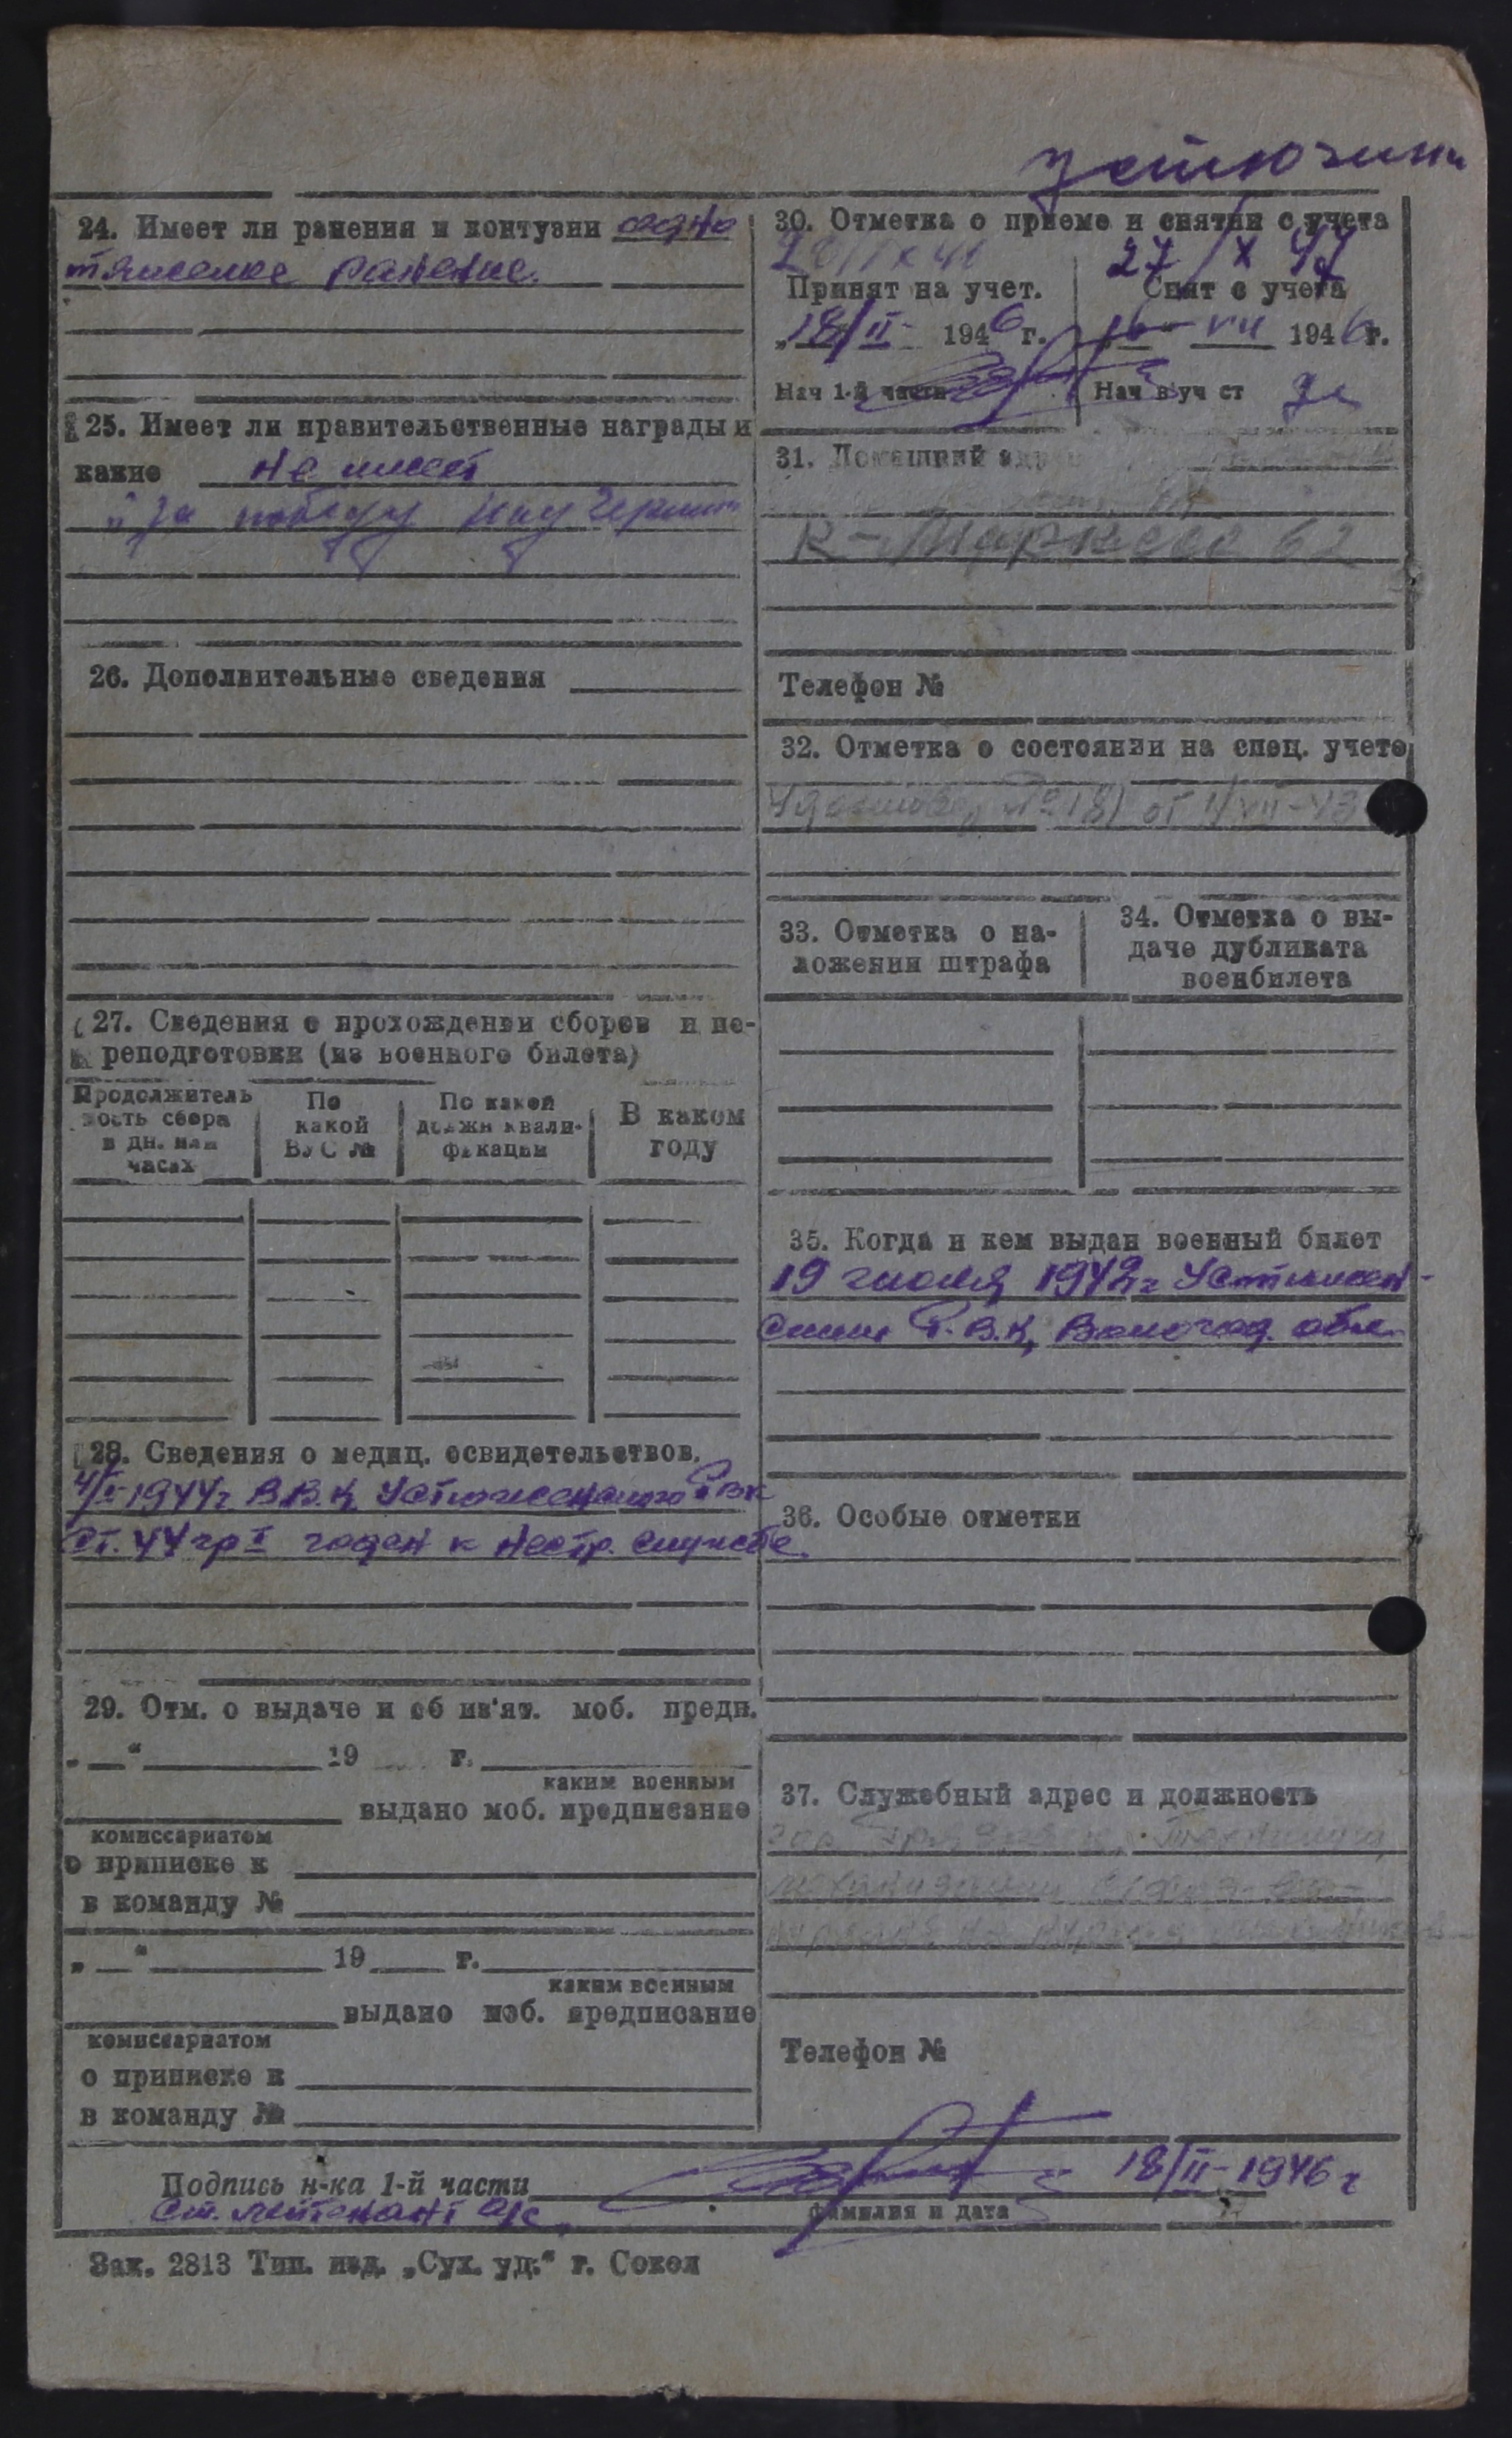 Устюжны
24. Имеет ли ранения и контузии одно
тяжелое ранение.
25. Имеет ли правительственные награды и
какие не имеет
"За победу над Герман"
26. Дополнительные сведения
27. Сведения о прохождении сборов и пе-
реподготовки (из военного билета)
Продолжитель
ность сбора
в дн. или
часах
По
какой
ВУС №
По какой
должн квали-
фикации
В каком
году
28. Сведения о медиц. освидетельствов.
1944г В.В.К. Устюженского РВК
ст. 44 гр I годен к нестр. службе.
29. Отм. о выдаче и об из'ят. моб. предп.
„ “ 19 г.
каким военным
выдано моб. предписание
комиссариатом
о приписке к
в команду №
„ “ 19 г.
каким военным
выдано моб. предписание
комиссариатом
о приписке к
в команду №
30. Отметка о приеме и снятии с учета
27/X 47
Принят на учет.
„18/II- 1946 г.
Нач 1-й части
Снят с учета
„16“ VII 1946г.
Нач в уч ст
31. Домашний адрес
К-Маркса 62
Телефон №
32. Отметка о состоянии на спец. учете
№ 181 от
33. Отметка о на-
ложении штрафа
34. Отметка о вы-
даче дубликата
военбилета
35. Когда и кем выдан военный билет
19 июля 1942г Устюжен-
ским Р.В.К, Вологод. обл.
36. Особые отметки
37. Служебный адрес и должность
Телефон №
Подпись н-ка 1-й части 18/II-1946 г
Ст. лейтенант а/с
фамилия и дата
Зак. 2813 Тип. изд. „Сух. уд.“ г. Сокол